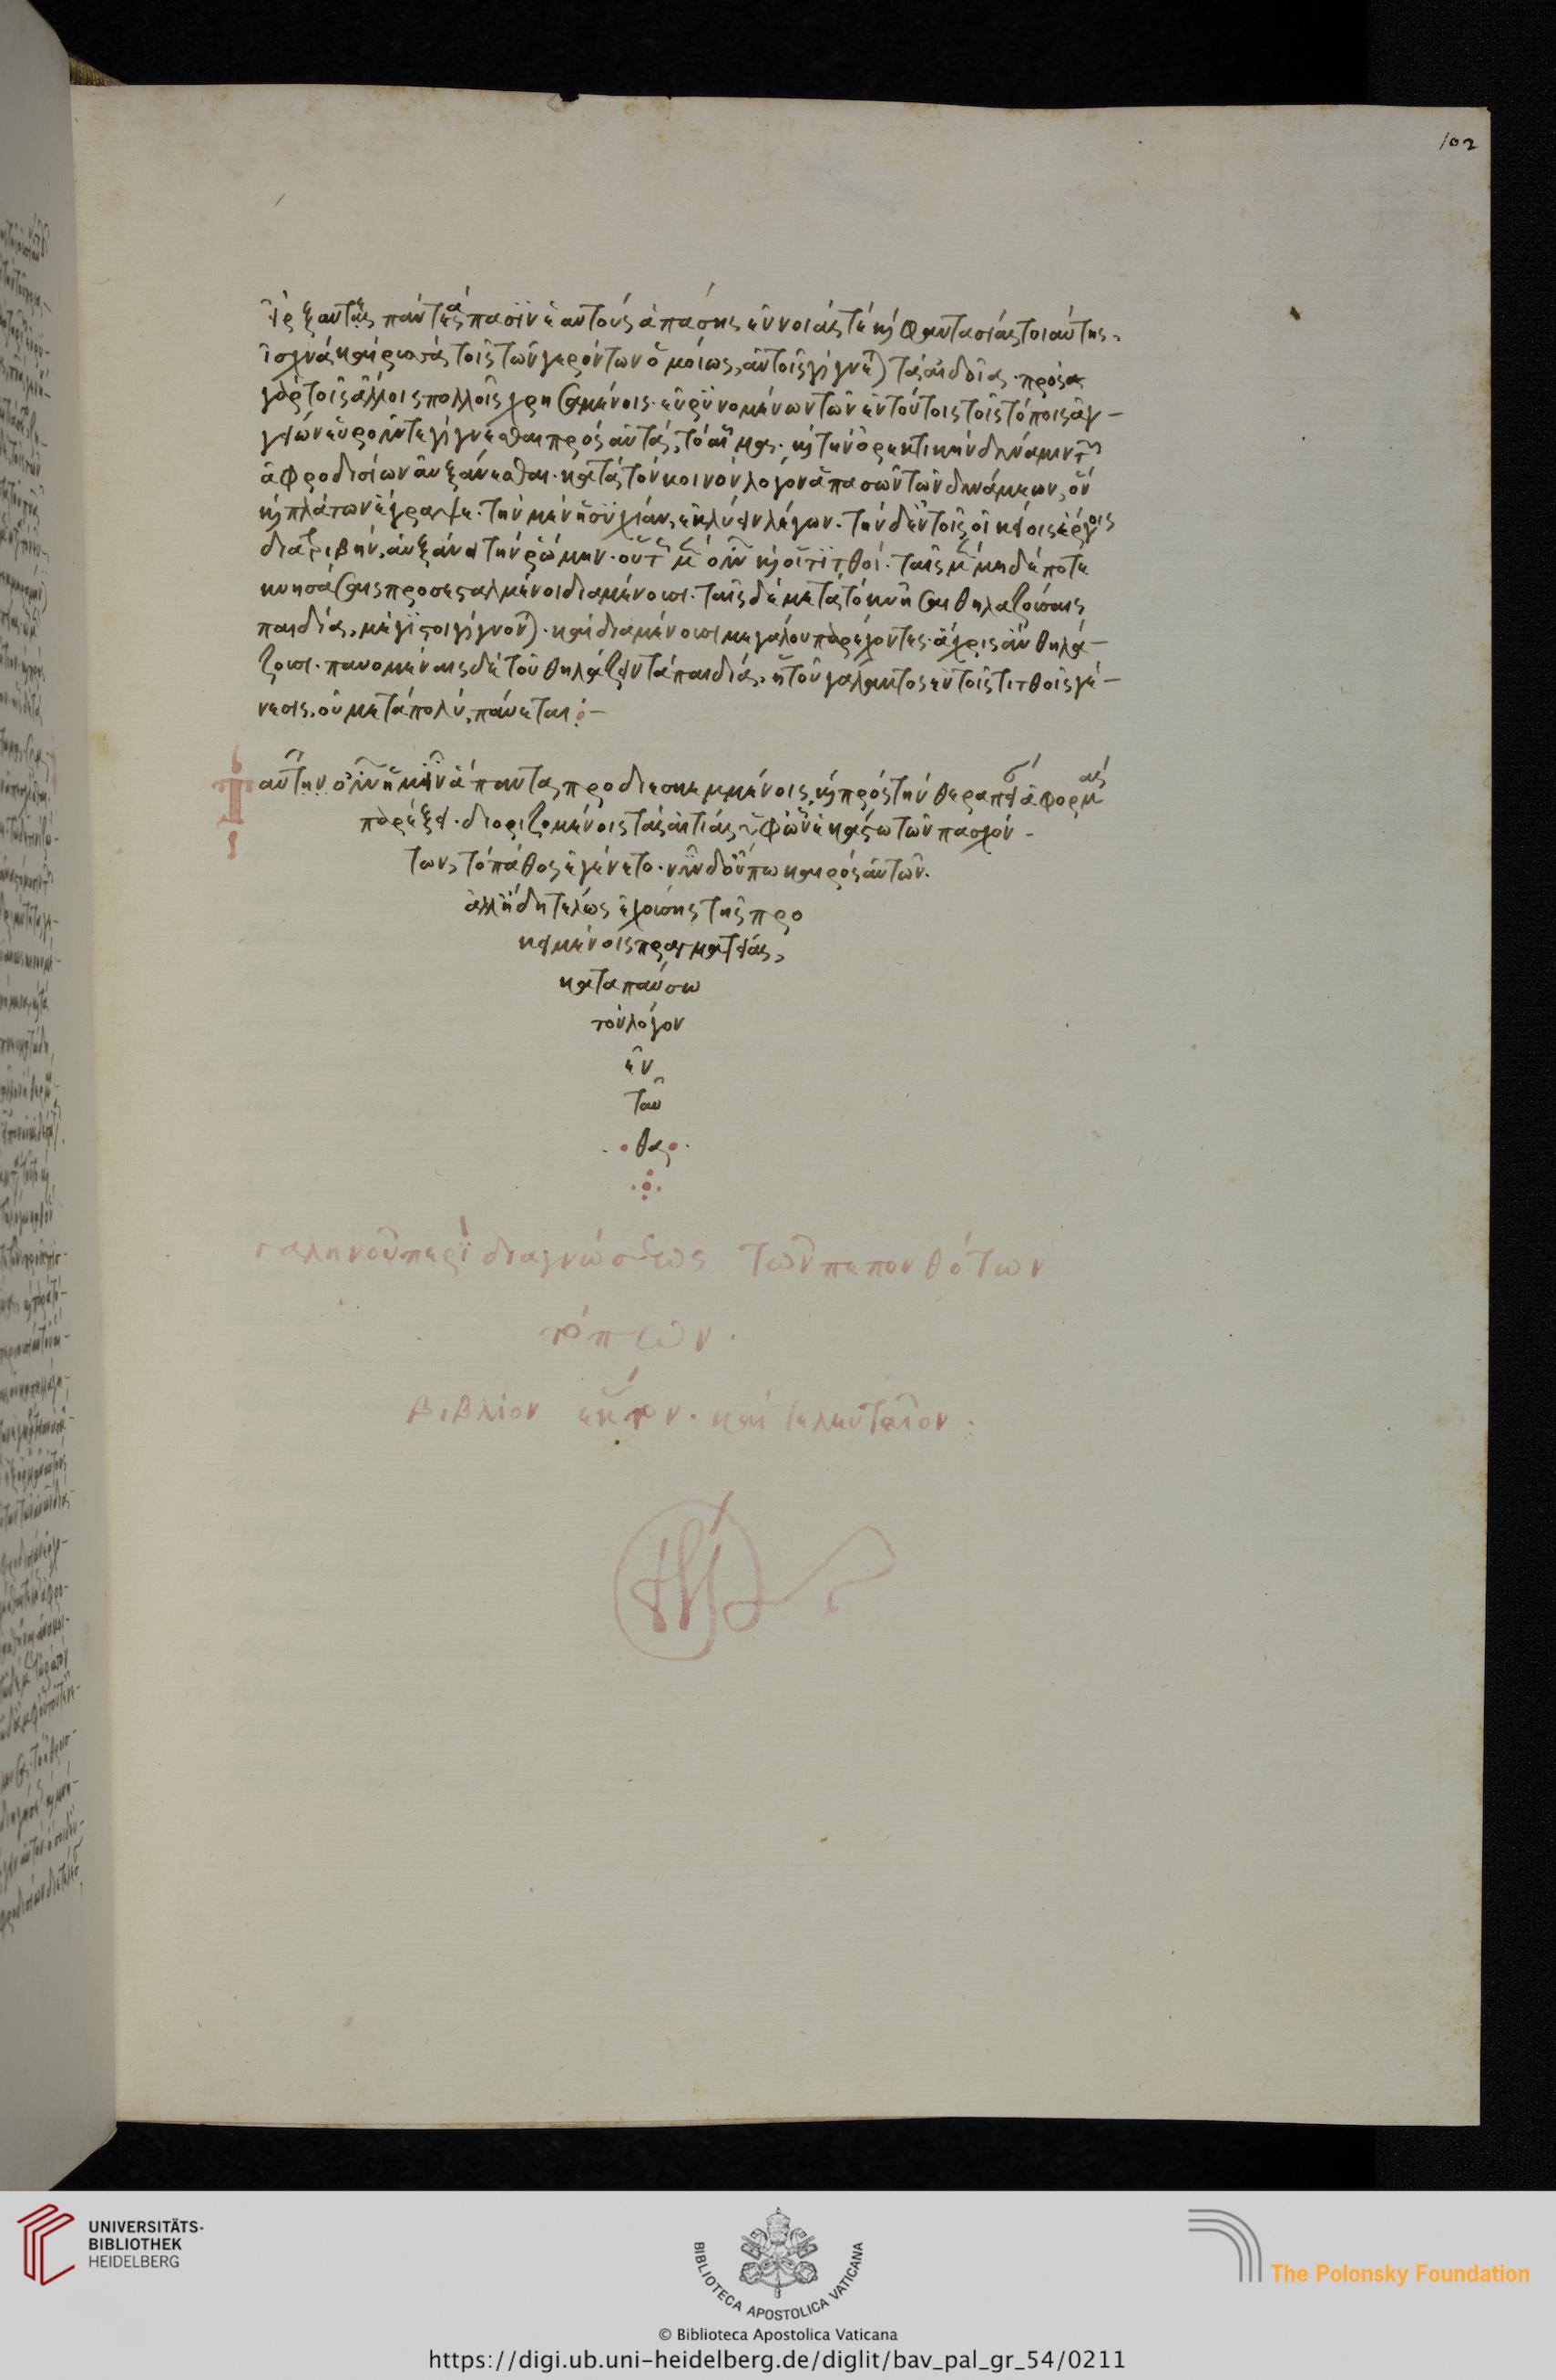 102
εἴρξαντες παντάπασιν ἑαυτοὺς ἁπάσης ἐννοίας τὲ καὶ φαντασίας τοιαύτης,
ἰσχνὰ καὶ ῥυσὰ τοῖς τῶν γερόντων ὁμοίως, αὐτοῖς γίγνεται τὰ αἰδοῖα. πρὸς
γὰρ τοῖς ἄλλοις πολλοῖς χρησαμένοις. εὐρυνομένων τῶν ἐν τούτοις τοῖς τόποις ἀγ-
γείων εὔρουν τε γίγνεσθαι πρὸς αὐτὰ, τὸ αἷμα. καὶ τὴν ὀρεκτικὴν δύναμιν τῶν
ἀφροδισίων αὐξάνεσθαι. κατὰ τὸν κοινὸν λόγον ἁπασῶν τῶν δυνάμεων, ὃν
καὶ πλάτων ἔγραψε. τὴν μὲν ἡσυχίαν, ἐκλύειν λέγων. τὴν δ' ἐν τοῖς οἰκείοις ἔργοις
διατριβὴν, αὐξάνειν τὴν ῥώμην. οὕτως μὲν οὖν καὶ οἱ τιτθοὶ. ταῖς μὲν μηδέποτε
κυησάσαις προσεσταλμένοι διαμένουσι. ταῖς δὲ μετὰ τὸ κυῆσαι θηλαζούσαις
παιδία, μέγιστοι γίγνονται. καὶ διαμένουσι μεγάλου παρέχοντες. ἄχρις ἂν θηλά-
ζωσι. παυομέναις δὲ τοῦ θηλάζειν τὰ παιδία, ἡ τοῦ γάλακτος ἐν τοῖς τιτθοῖς γέ-
νεσις, οὐ μετὰ πολὺ, παύεται :-
Ταῦτην οὖν ἡμῖν ἅπαντα, προδιεσκεμμένοις, καὶ πρὸς τὴν θεραπείαν ἀφορμὰς
παρέξει. διοριζομένοις τὰς αἰτίας ὑφ' ὧν ἑκάστω τῶν πασχόν-
των, τὸ πάθος ἐγένετο. νῦν δ' οὔπω καιρὸς αὐτῶν.
ἀλλ' ἤδη τέλος ἐχούσης τῆς προ
κειμένοις πραγματείας,
καταπαύσω
τὸν λόγον
ἐν
ταῦ
θα
γαληνοῦ περὶ διαγνώσεως τῶν πεπονθότων
τόπων.
βιβλίον ἕκτον. καὶ τελευταῖον.
UNIVERSITÄTS-
BIBLIOTHEK
HEIDELBERG
BIBLIOTECA APOSTOLICA VATICANA
The Polonsky Foundation
© Biblioteca Apostolica Vaticana
https://digi.ub.uni-heidelberg.de/diglit/bav_pal_gr_54/0211